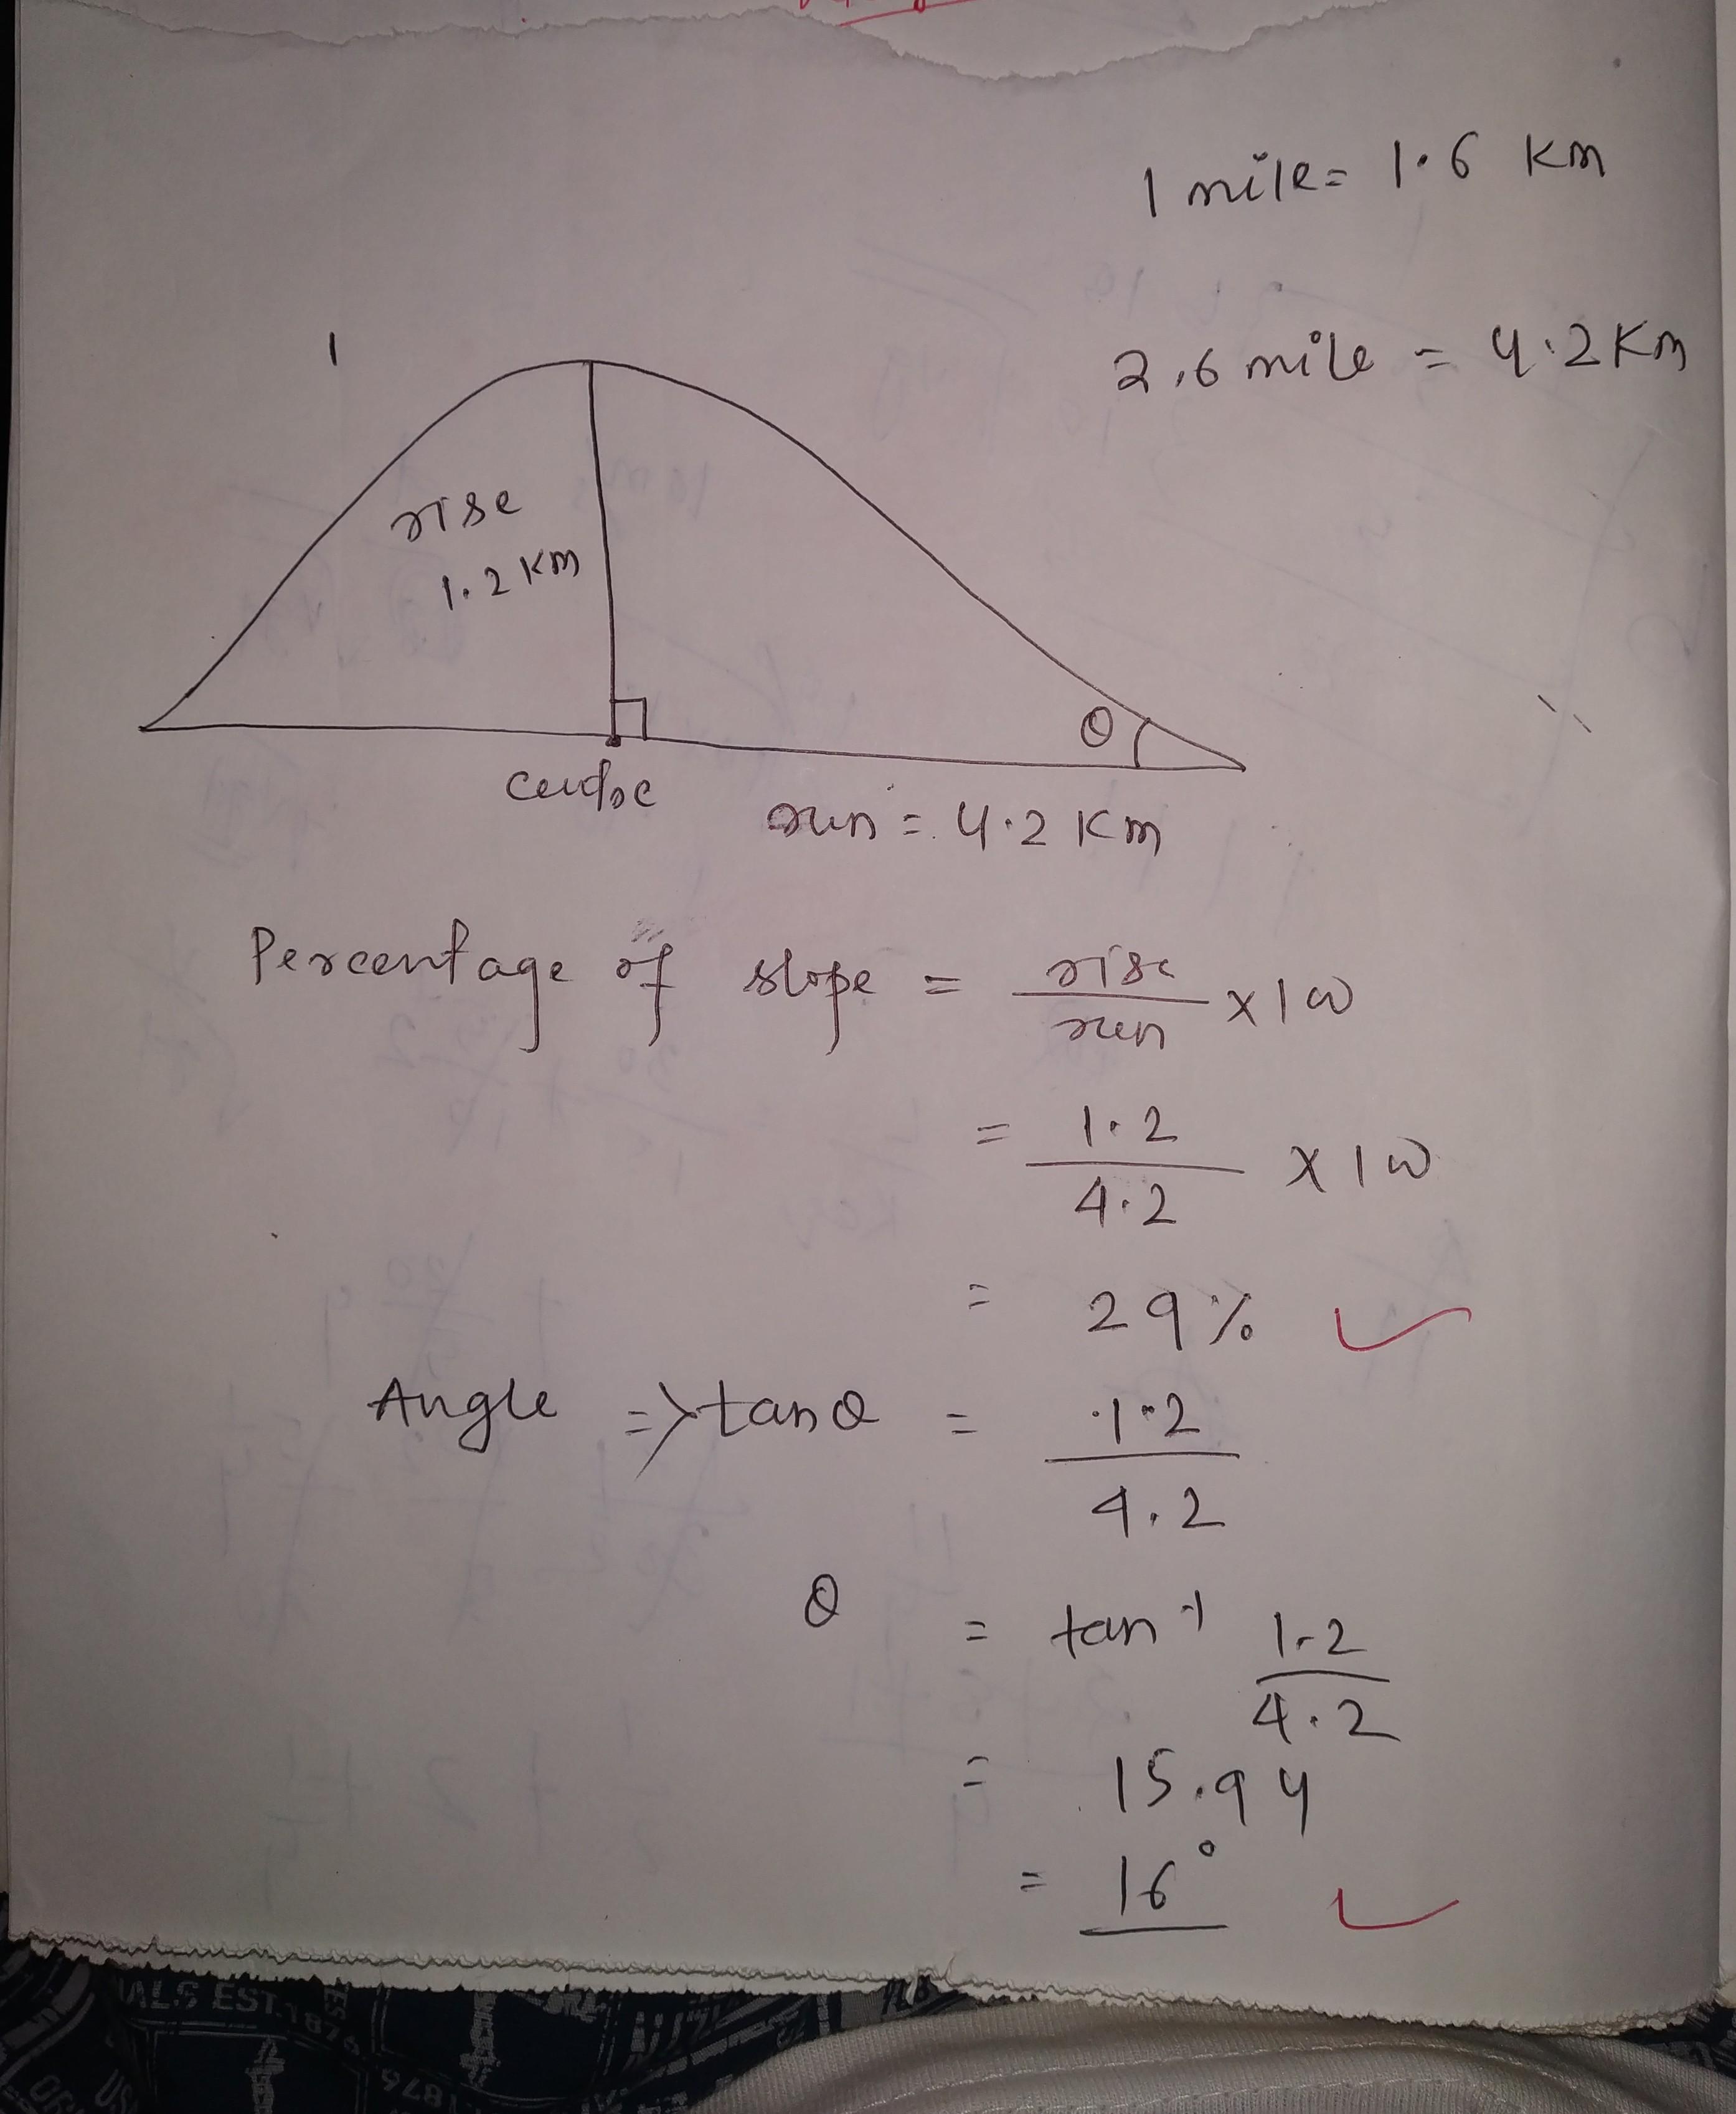 1 mile = 1.6 Km
2.6 mile = 4.2 Km
1
rise
1.2 KM
θ
centre
run = 4.2 Km
Percentage of slope = rise/run × 100
= 1.2/4.2 × 100
= 29%
Angle => tan θ = 1.2/4.2
θ = tan⁻¹ 1.2/4.2
= 15.94
= 16°
IALS EST. 1876
1876